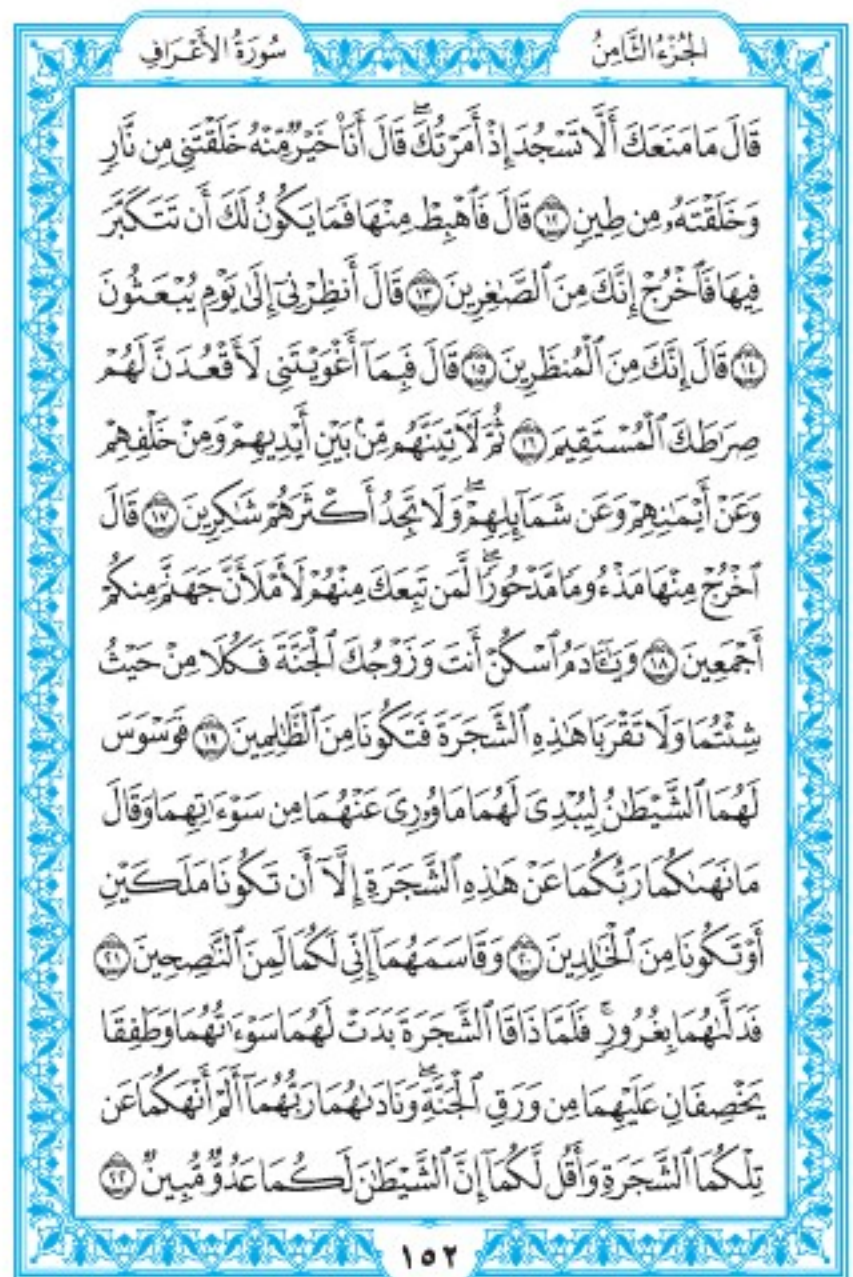 الجُزْءُ الثَّامِنُ
سُورَةُ الأَعْرَافِ
قَالَ مَا مَنَعَكَ أَلَّا تَسْجُدَ إِذْ أَمَرْتُكَۖ قَالَ أَنَا۠ خَيْرٌ مِّنْهُ خَلَقْتَنِي مِن نَّارٍ
وَخَلَقْتَهُۥ مِن طِينٍ ﴿١٢﴾ قَالَ فَٱهْبِطْ مِنْهَا فَمَا يَكُونُ لَكَ أَن تَتَكَبَّرَ
فِيهَا فَٱخْرُجْ إِنَّكَ مِنَ ٱلصَّٰغِرِينَ ﴿١٣﴾ قَالَ أَنظِرْنِىٓ إِلَىٰ يَوْمِ يُبْعَثُونَ
﴿١٤﴾ قَالَ إِنَّكَ مِنَ ٱلْمُنظَرِينَ ﴿١٥﴾ قَالَ فَبِمَآ أَغْوَيْتَنِى لَأَقْعُدَنَّ لَهُمْ
صِرَٰطَكَ ٱلْمُسْتَقِيمَ ﴿١٦﴾ ثُمَّ لَءَاتِيَنَّهُم مِّنۢ بَيْنِ أَيْدِيهِمْ وَمِنْ خَلْفِهِمْ
وَعَنْ أَيْمَٰنِهِمْ وَعَن شَمَآئِلِهِمْۖ وَلَا تَجِدُ أَكْثَرَهُمْ شَٰكِرِينَ ﴿١٧﴾ قَالَ
ٱخْرُجْ مِنْهَا مَذْءُومًا مَّدْحُورًاۖ لَّمَن تَبِعَكَ مِنْهُمْ لَأَمْلَأَنَّ جَهَنَّمَ مِنكُمْ
أَجْمَعِينَ ﴿١٨﴾ وَيَٰٓـَٔادَمُ ٱسْكُنْ أَنتَ وَزَوْجُكَ ٱلْجَنَّةَ فَكُلَا مِنْ حَيْثُ
شِئْتُمَا وَلَا تَقْرَبَا هَٰذِهِ ٱلشَّجَرَةَ فَتَكُونَا مِنَ ٱلظَّٰلِمِينَ ﴿١٩﴾ فَوَسْوَسَ
لَهُمَا ٱلشَّيْطَٰنُ لِيُبْدِىَ لَهُمَا مَا وُۥرِىَ عَنْهُمَا مِن سَوْءَٰتِهِمَا وَقَالَ
مَا نَهَىٰكُمَا رَبُّكُمَا عَنْ هَٰذِهِ ٱلشَّجَرَةِ إِلَّآ أَن تَكُونَا مَلَكَيْنِ
أَوْ تَكُونَا مِنَ ٱلْخَٰلِدِينَ ﴿٢٠﴾ وَقَاسَمَهُمَآ إِنِّى لَكُمَا لَمِنَ ٱلنَّٰصِحِينَ ﴿٢١﴾
فَدَلَّىٰهُمَا بِغُرُورٍۚ فَلَمَّا ذَاقَا ٱلشَّجَرَةَ بَدَتْ لَهُمَا سَوْءَٰتُهُمَا وَطَفِقَا
يَخْصِفَانِ عَلَيْهِمَا مِن وَرَقِ ٱلْجَنَّةِۖ وَنَادَىٰهُمَا رَبُّهُمَآ أَلَمْ أَنْهَكُمَا عَن
تِلْكُمَا ٱلشَّجَرَةِ وَأَقُل لَّكُمَآ إِنَّ ٱلشَّيْطَٰنَ لَكُمَا عَدُوٌّ مُّبِينٌ ﴿٢٢﴾
١٥٢